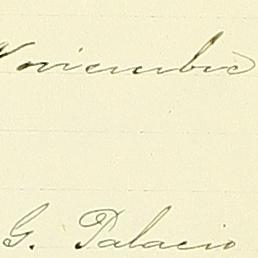 Noviembre
G. Palacio